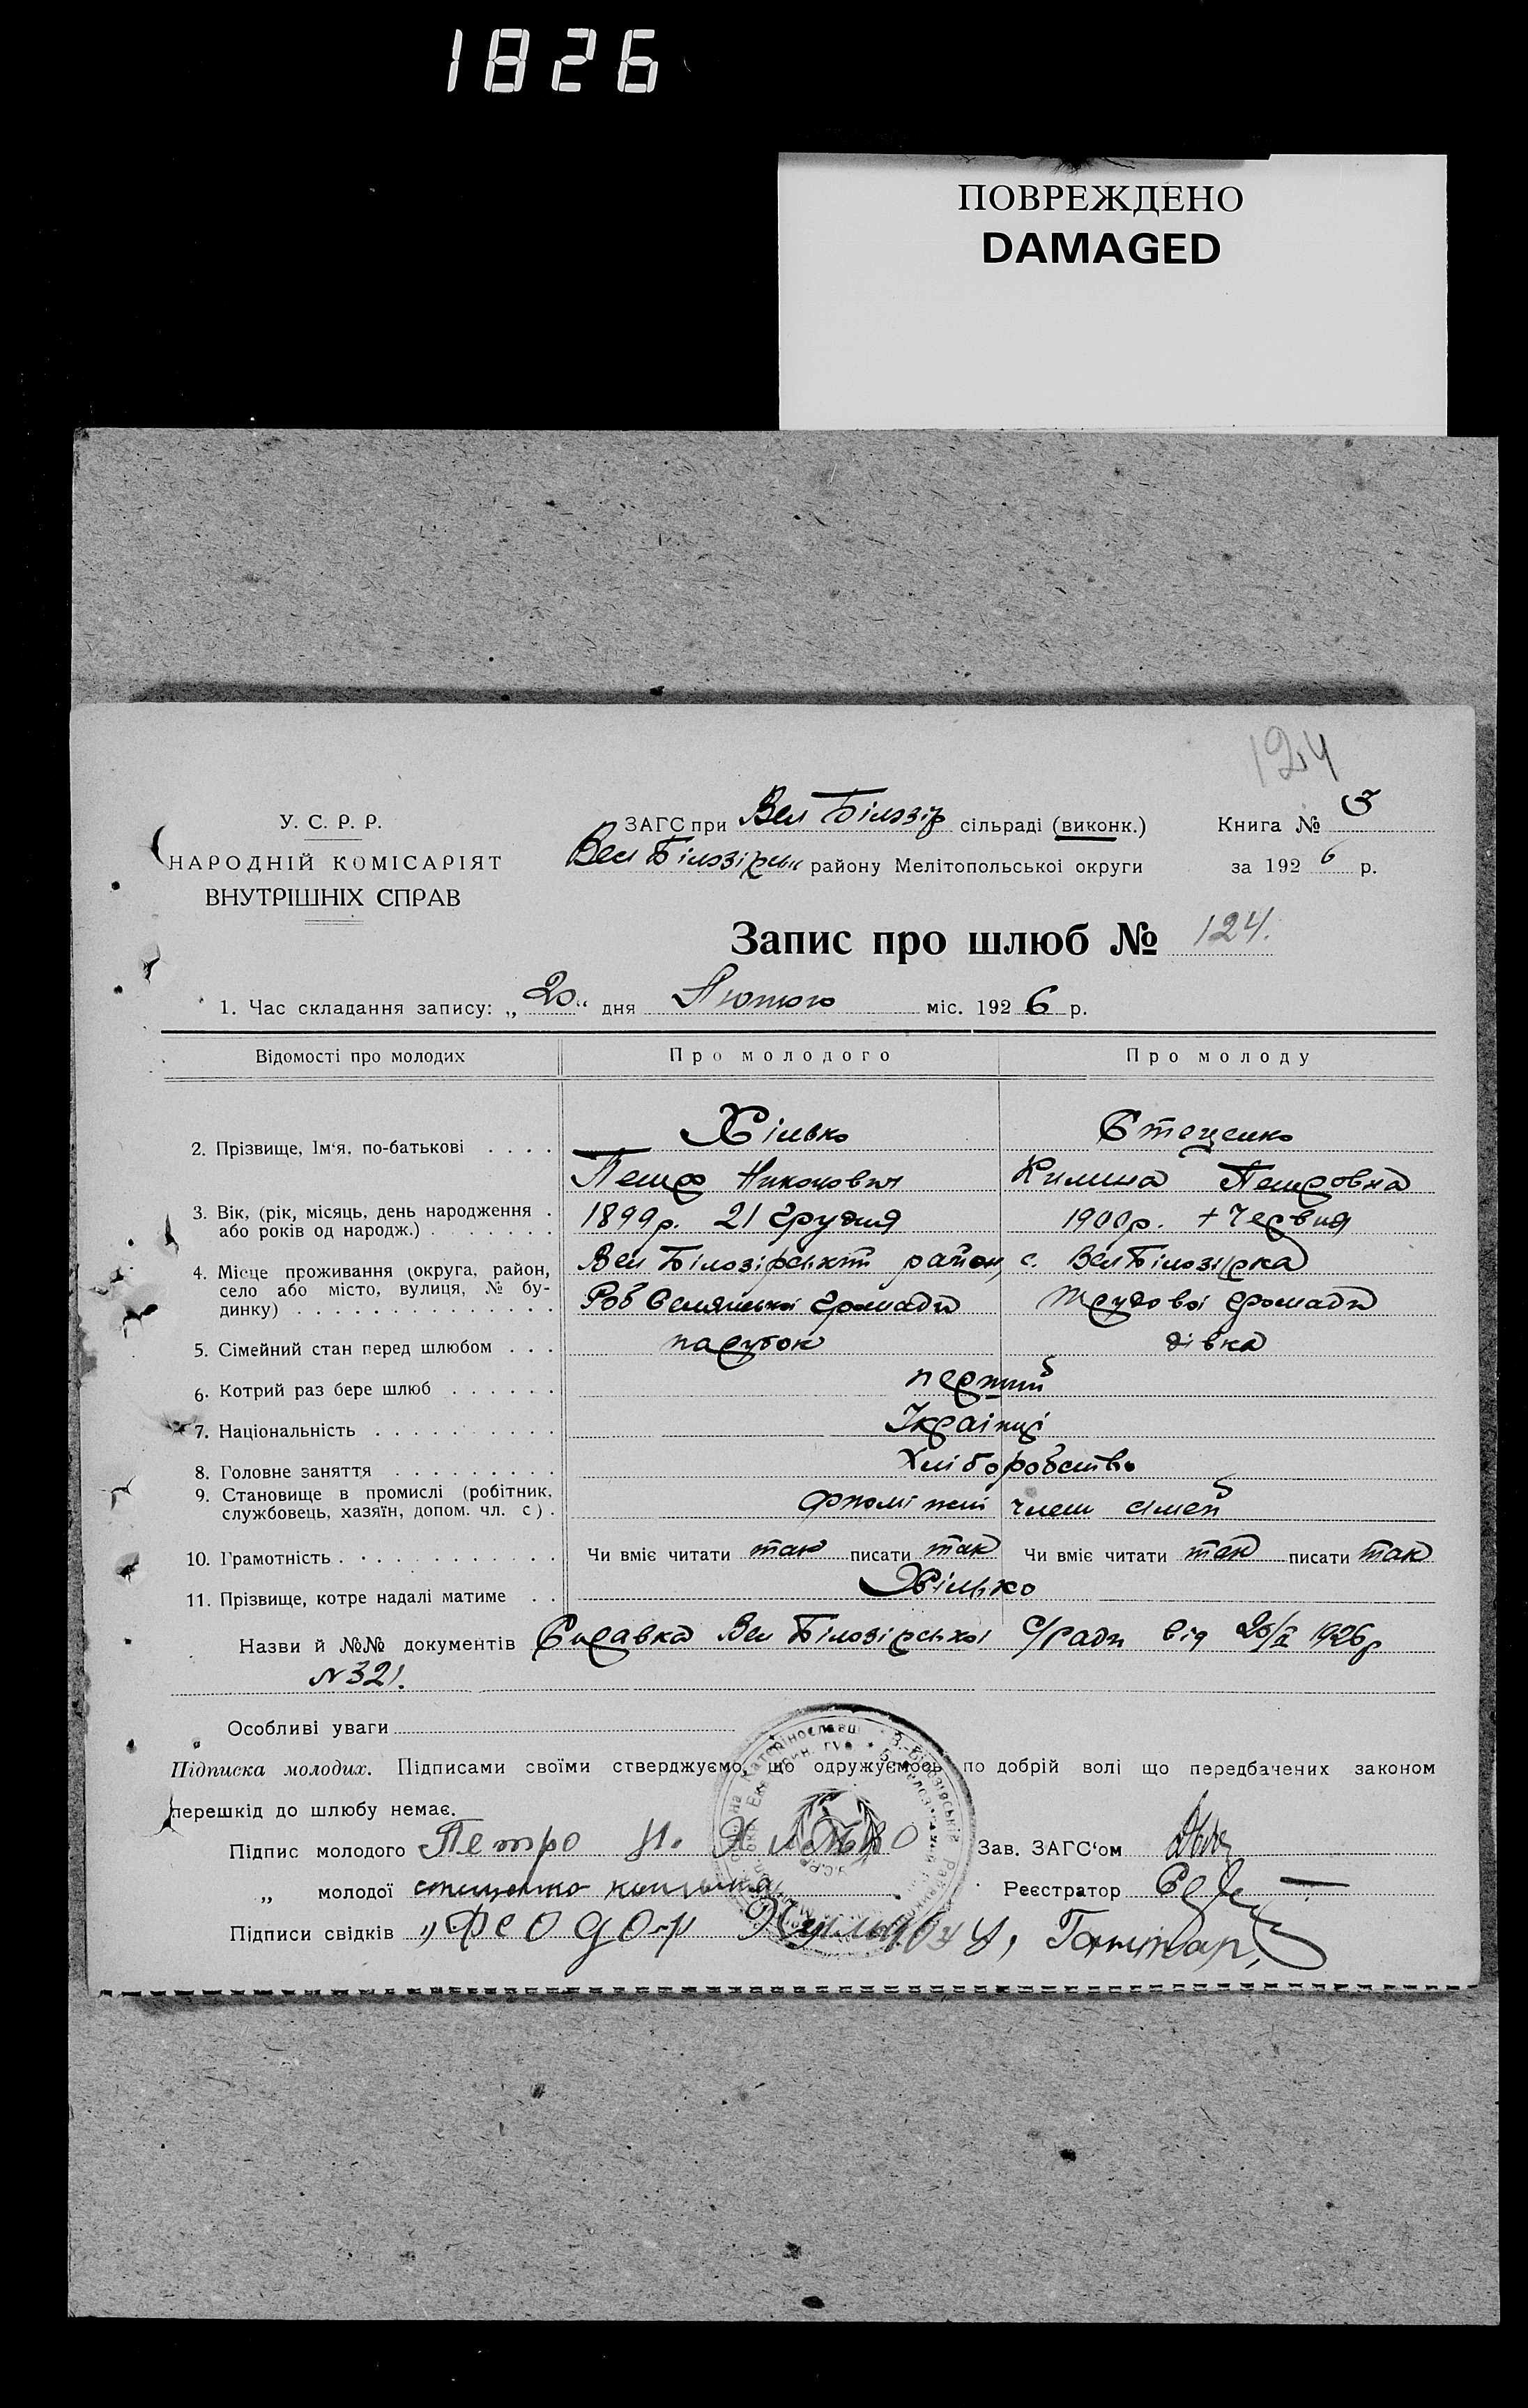 1826
ПОВРЕЖДЕНО
DAMAGED
124
У. С. Р. Р.
НАРОДНІЙ КОМІСАРІЯТ
ВНУТРІШНІХ СПРАВ
ЗАГС при Вел Білозір сільраді (виконк.)
Вел Білозірськ району Мелітопольскої округи
Книга № 3
за 1926 р.
Запис про шлюб № 124.
1. Час складання запису: „20“ дня Лютого міс. 1926 р.
Відомості про молодих Про молодого Про молоду
2. Прізвище, Ім'я, по-батькові . . . . Хілько Стеценко
Петро Никонович Килина Петровна
3. Вік, (рік, місяць, день народження . 1899р. 21 грудня 1900р. червня
або років од народж.) . . . . . . .
4. Місце проживання (округа, район, Вел Білозірський район, с. Вел Білозірка
село або місто, вулиця, № бу-
динку) . . . . . . . . . . . . . . Роб Селянської громади Трудової громади
5. Сімейний стан перед шлюбом . . . парубок дівка
6. Котрий раз бере шлюб . . . . . . перший
7. Національність . . . . . . . . . . Українці
8. Головне заняття . . . . . . . . . Хліборобство
9. Становище в промислі (робітник,
службовець, хазяїн, допом. чл. с) . член сімей
10. Грамотність . . . . . . . . . . . Чи вміє читати так писати так Чи вміє читати так писати так
11. Прізвище, котре надалі матиме . . Хілько
Назви й №№ документів Справка Вел Білозірської С/ради від 20/II 1926р
N 321.
Особливі уваги
Підписка молодих. Підписами своїми стверджуємо, що одружуємось по добрій волі що передбачених законом
перешкід до шлюбу немає.
Підпис молодого Петро Н. Хилько Зав. ЗАГС'ом
„ молодої стеценко килина Реєстратор
Підписи свідків „Феодор Гонтар,